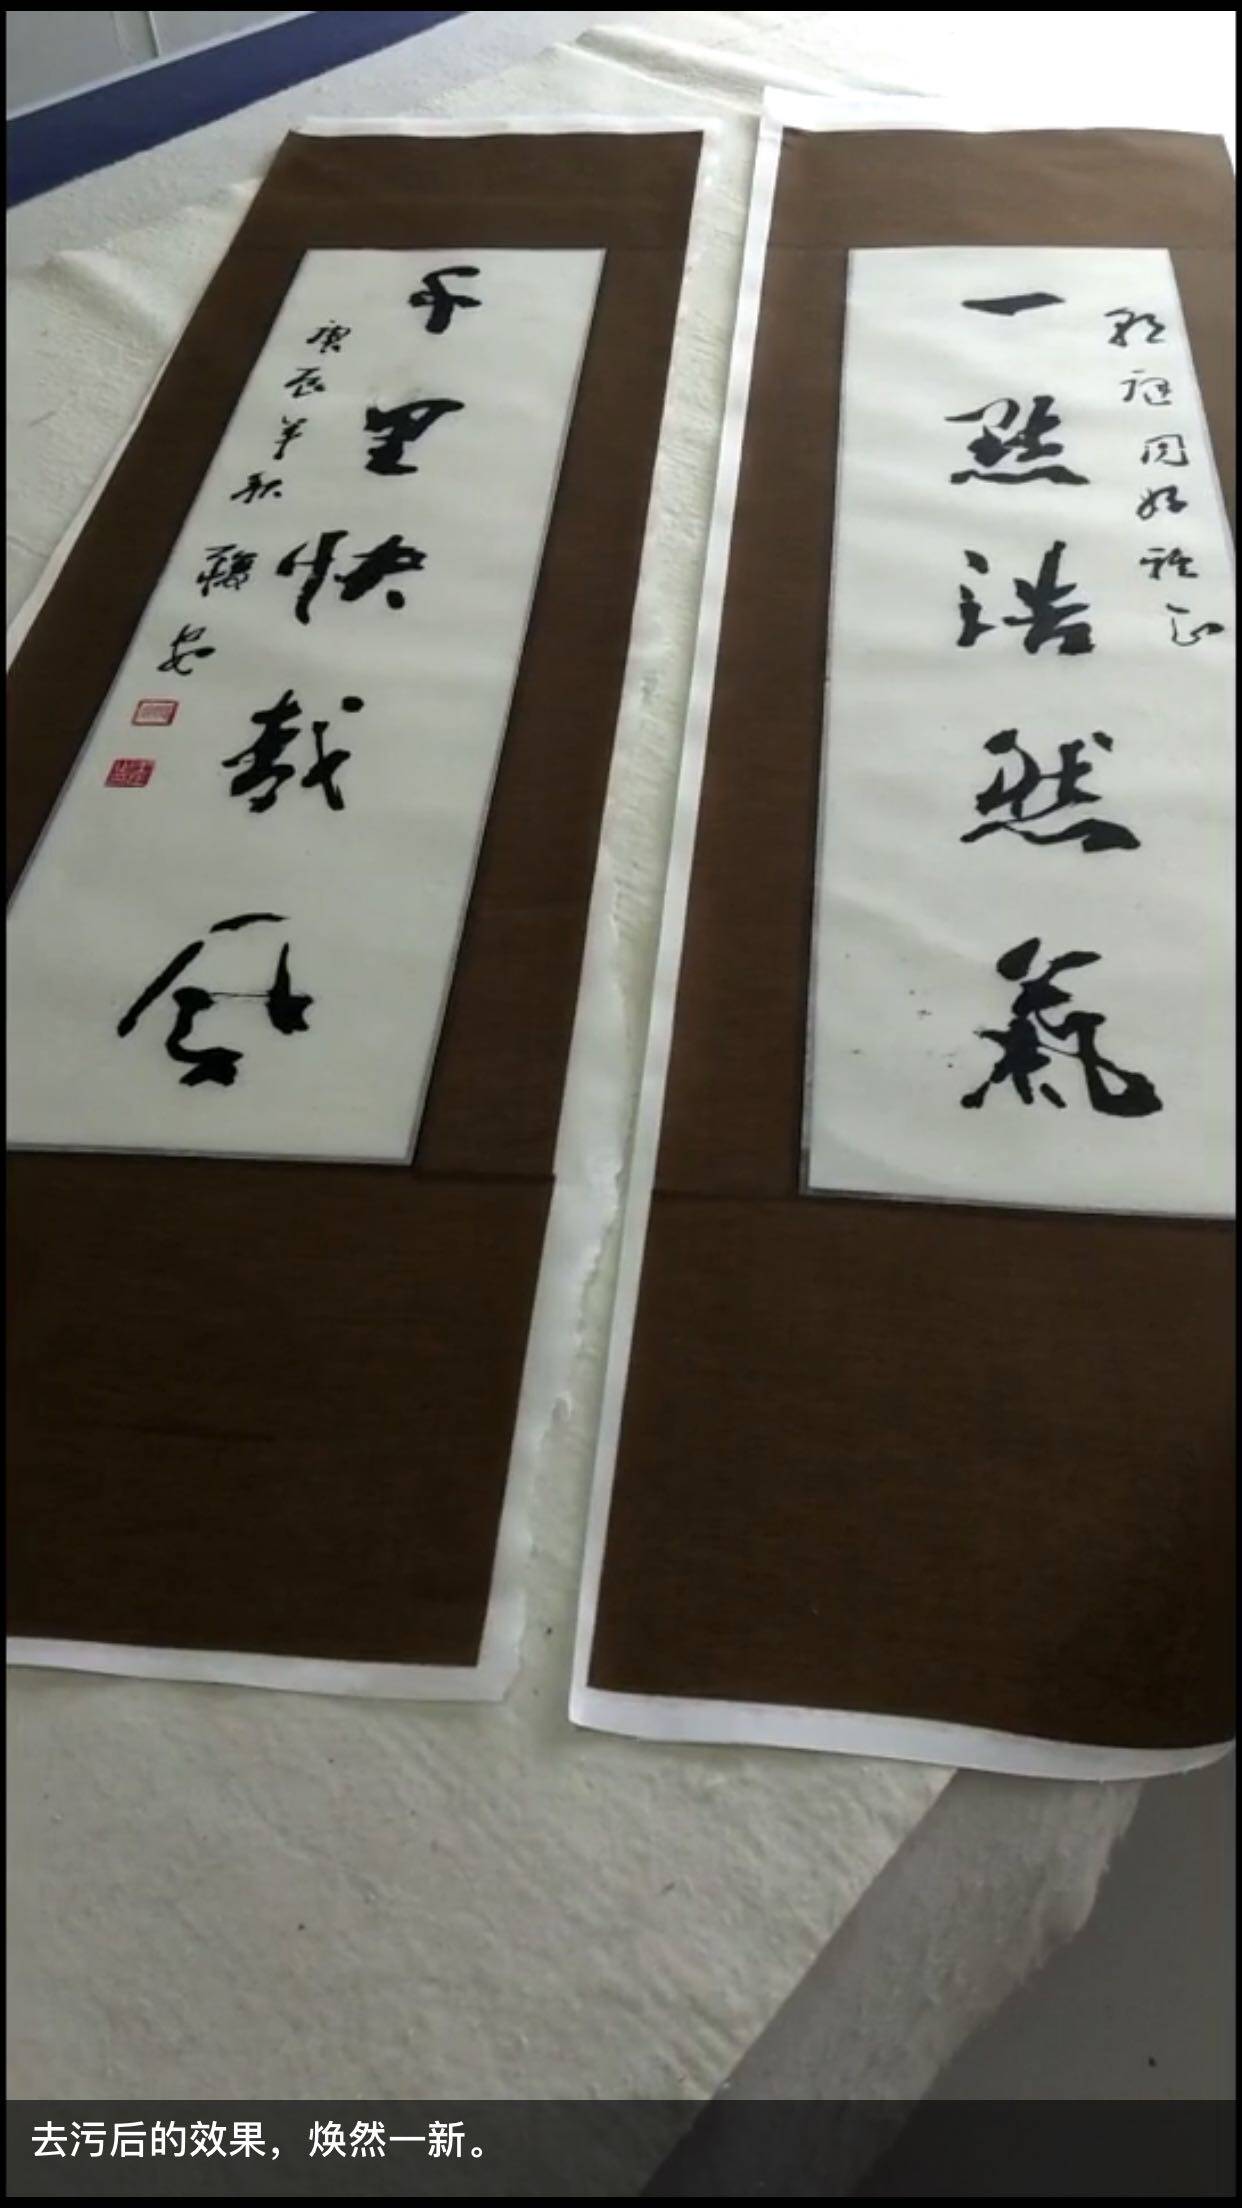 同好雅正
一點浩然氣
千里快哉風
庚辰年秋
去污后的效果，焕然一新。